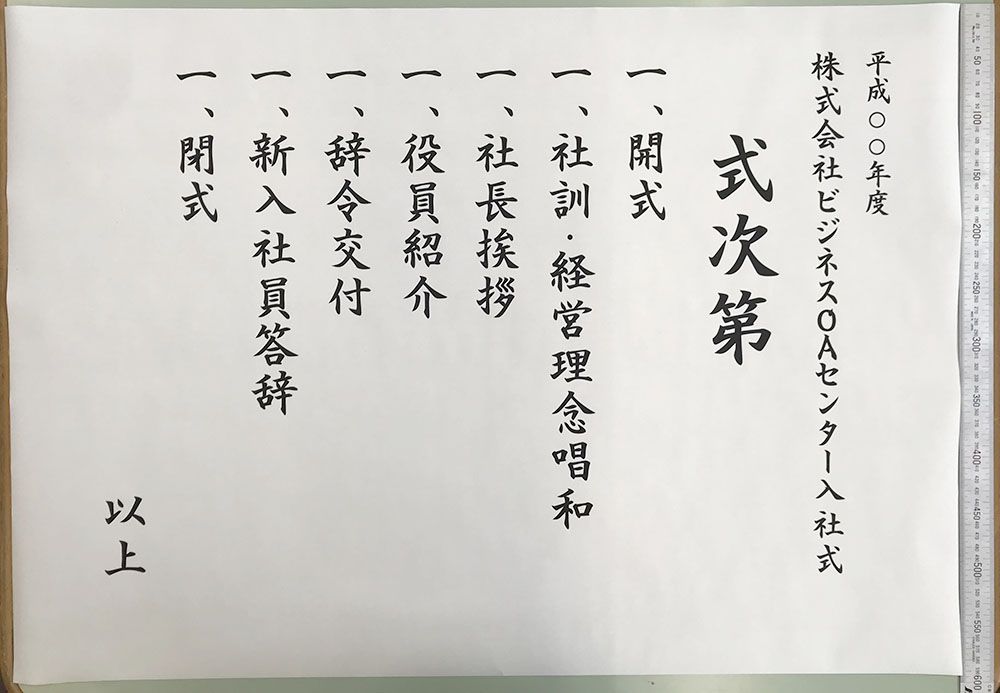 平成〇〇年度
株式会社ビジネスOAセンター入社式
式次第
一、開式
一、社訓・経営理念唱和
一、社長挨拶
一、役員紹介
一、辞令交付
一、新入社員答辞
一、閉式
以上
50
100
150
200
250
300
350
400
450
500
550
600